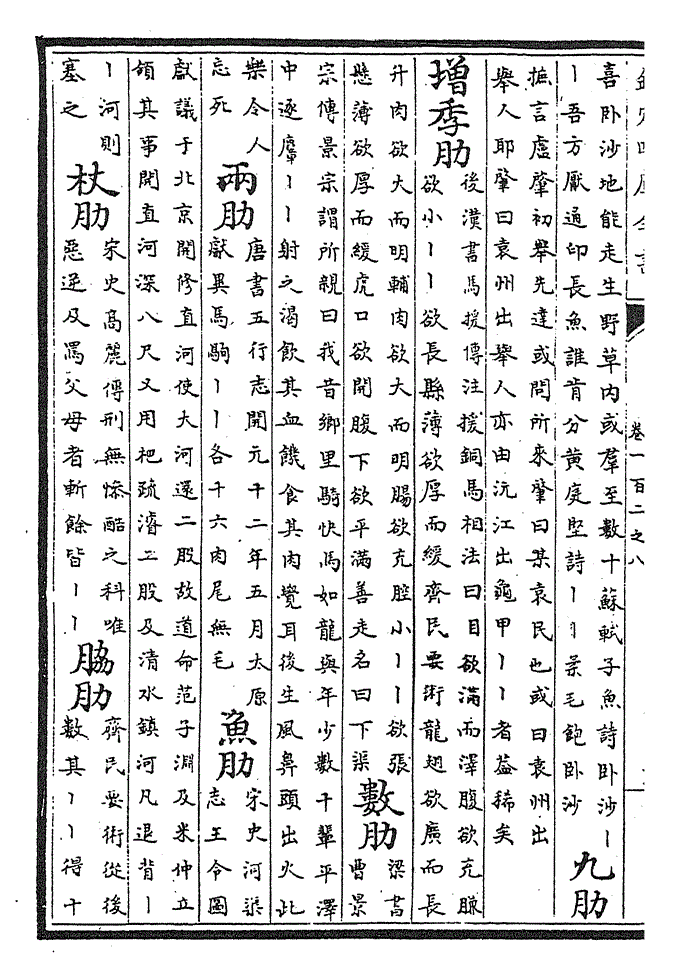 欽定四庫全書
卷一百二之八
喜卧沙地能走生野草內或羣至數十蘇軾子魚詩卧沙丨
丨吾方厭通印長魚誰肯分黄庭堅詩丨丨柔毛飽卧沙
九肋
摭言盧肇初舉先達或問所來肇曰某袁民也或曰袁州出
舉人耶肇曰袁州出舉人亦由沅江出龜甲丨丨者葢稀矣
增季肋
後漢書馬援傳注援銅馬相法曰目欲滿而澤腹欲充膁
欲小丨丨欲長縣薄欲厚而緩齊民要術龍翅欲廣而長
升肉欲大而明輔肉欲大而明腸欲充腔小丨丨欲張
懸薄欲厚而緩虎口欲開腹下欲平滿善走名曰下渠
數肋
梁書
曹景
宗傳景宗謂所親曰我昔鄉里騎快馬如龍與年少數十輩平澤
中逐麞丨丨射之渴飲其血饑食其肉覺耳後生風鼻頭出火此
樂令人
忘死
兩肋
唐書五行志開元十二年五月太原
獻異馬駒丨丨各十六肉尾無毛
魚肋
宋史河渠
志王令圖
獻議于北京開修直河使大河還二股故道命范子淵及朱仲立
領其事開直河深八尺又用杷疏濬二股及清水鎮河凡退背丨
丨河則
塞之
杖肋
宋史高麗傳刑無慘酷之科唯
惡逆及罵父母者斬餘皆丨丨
脇肋
齊民要術從後
數其丨丨得十